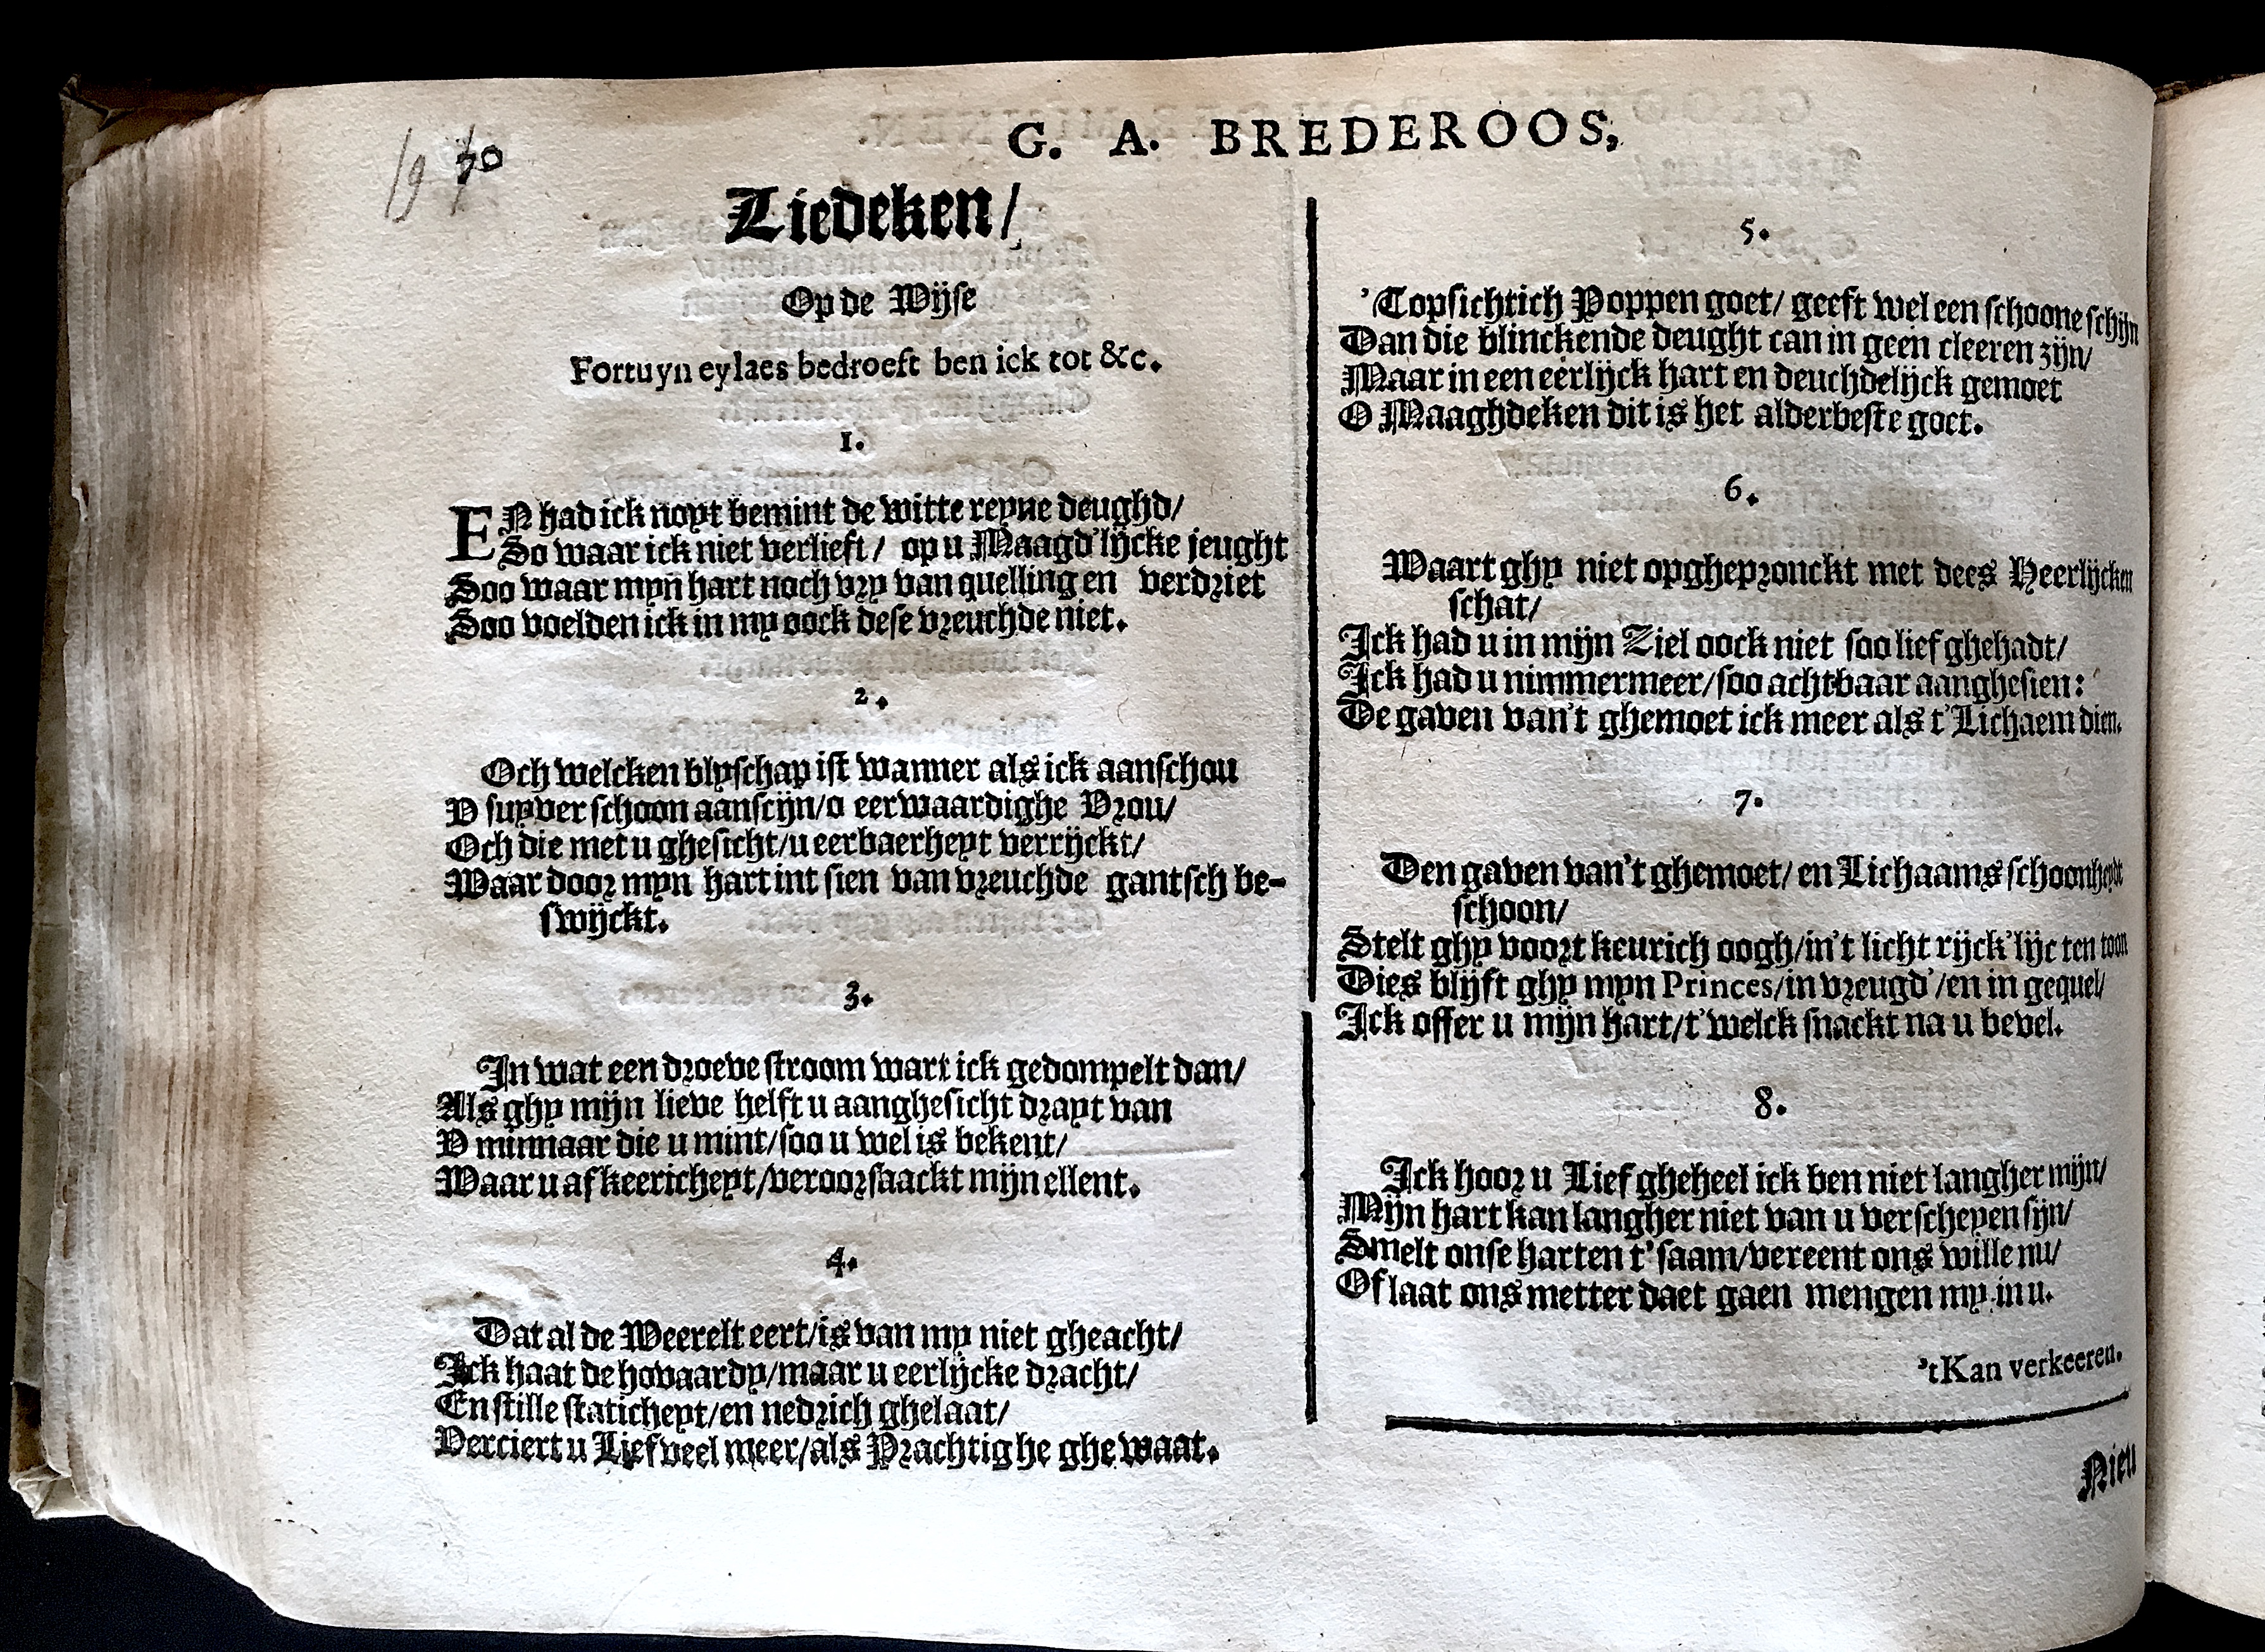 70
G. A. BREDEROOS,
Liedeken/
Op de Wijse
Fortuyn eylaes bedroeft ben ick tot &c.
1.
EN had ick noyt bemint de witte reyne deughd/
So waar ick niet verlieft/ op u Maagd'lijcke jeught
Soo waar myn hart noch vry van quelling en verdriet
Soo voelden ick in my oock dese vreuchde niet.
2.
Och welcken blyschap ist wanner als ick aanschou
V suyver schoon aanscijn/o eerwaardighe Vrou/
Och die met u ghesicht/u eerbaerheyt verrijckt/
Waar door myn hart int sien van vreuchde gantsch be-
swijckt.
3.
In wat een droeve stroom wart ick gedompelt dan/
Als ghy mijn lieve helft u aanghesicht drayt van
V minnaar die u mint/soo u wel is bekent/
Waar u afkeericheyt/veroorsaackt mijn ellent.
4.
Dat al de Weerelt eert/is van my niet gheacht/
Ick haat de hovaardy/maar u eerlijcke dracht/
En stille staticheyt/en nedrich ghelaat/
Verciert u Lief veel meer/als Prachtighe ghewaat.
5.
'Topsichtich Poppen goet/ geeft wel een schoone schijn
Dan die blinckende deught can in geen cleeren zijn/
Maar in een eerlijck hart en deuchdelijck gemoet
O Maaghdeken dit is het alderbeste goet.
6.
Waart ghy niet opghepronckt met dees Heerlijcken
schat/
Ick had u in mijn Ziel oock niet soo lief ghehadt/
Ick had u nimmermeer/soo achtbaar aanghesien:
De gaven van't ghemoet ick meer als t'Lichaem dien.
7.
Den gaven van't ghemoet/ en Lichaams schoonheydt
schoon/
Stelt ghy voort keurich oogh/in't licht rijck'lijc ten toon
Dies blijft ghy myn Princes/in vreugd'/en in gequel/
Ick offer u mijn hart/t'welck snackt na u bevel.
8.
Ick hoor u Lief gheheel ick ben niet langher mijn/
Mijn hart kan langher niet van u verscheyen sijn/
Smelt onse harten t'saam/vereent ons wille nu/
Of laat ons metter daet gaen mengen my in u.
'tKan verkeeren.
Nieu